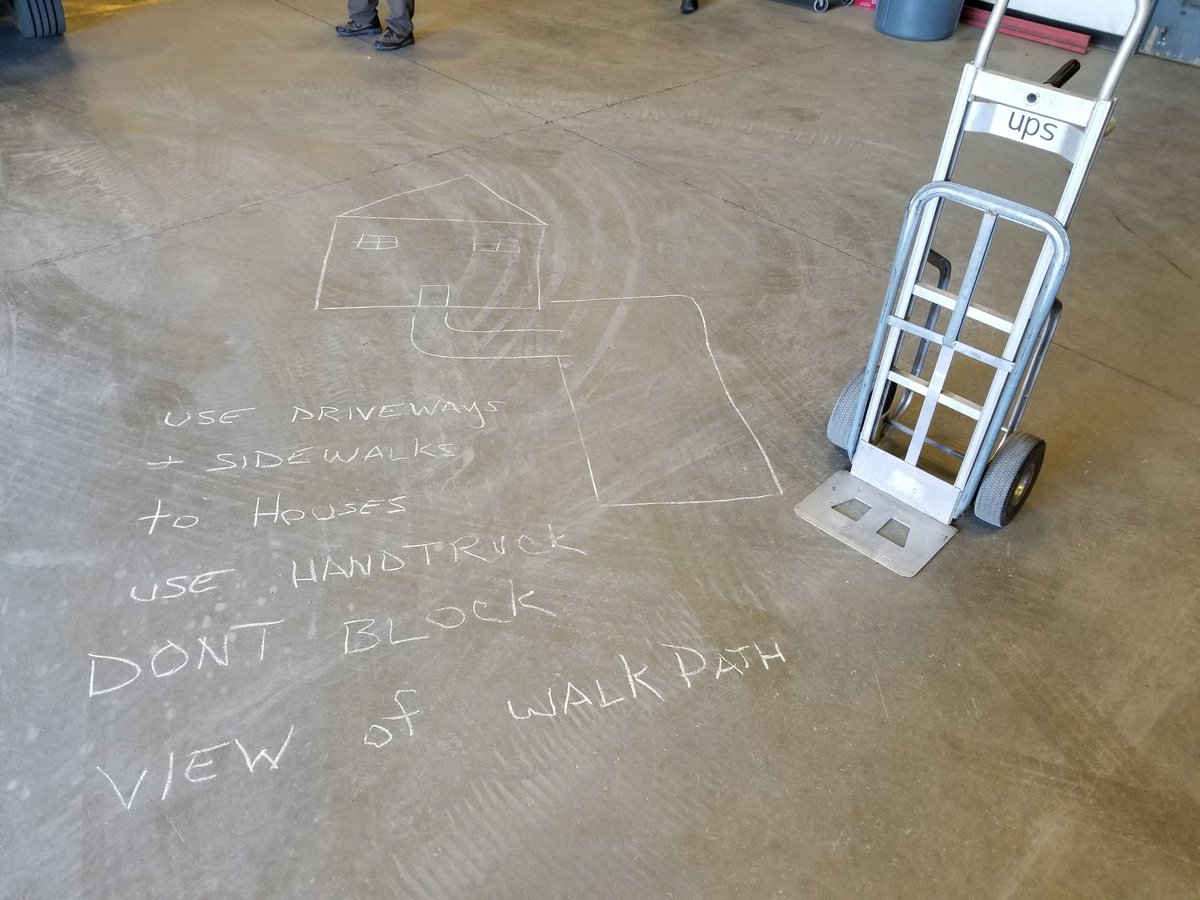 ups
USE DRIVEWAYS
+ SIDEWALKS
to HOUSES
USE HANDTRUCK
DONT BLOCK
VIEW of WALKPATH